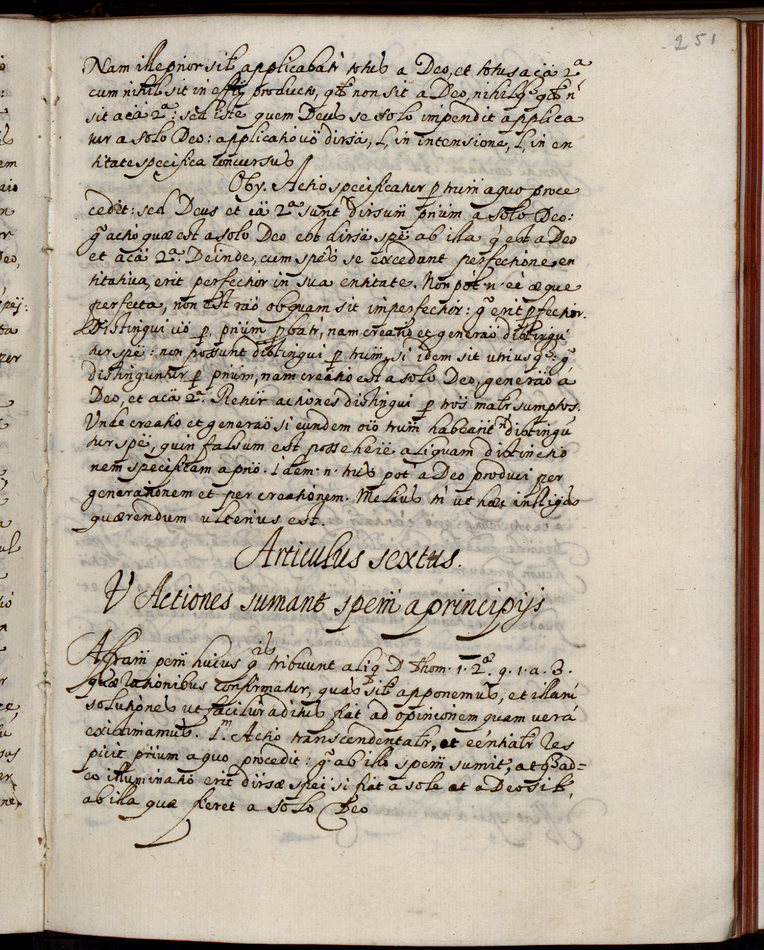 251
Nam ille prior sil applicabatr totus a Deo, et totus a cā 2ª
cum nihil sit in effū producto, qd non sit a Deo, nihilq3 qd n̄
sit a cā 2ª: sed iste quem Deus se solo impendit applica
tur a solo Deo: applicatio vō dirsa, l, in intensione, l, in en
titate specifica concursus
Oby. Actio specificatur p trum a quo proce
cedit: sed Deus et cā 2ª sunt dirsum prium a solo Deo:
g̃ actio quæ est a solo Deo est dirsæ spēi ab illa q̄ est a Deo
et a cā 2ª. Deinde, cum spēs se excedant perfectione en
titativa, erit perfectior in sua entitate. Non pot n. eē æque
perfecta, non est raō ob quam sit imperfectior: g̃ erit pfectior.
Distingui vō p prium pbatr, nam creatio et generaō distingū
tur spē: non possunt distingui p trum, si idem sit utriusq3: g̃
distinguntur p prium, nam creatio est a solo Deo, generaō a
Deo, et a cā 2ª. Rentr actiones distingui p tros matr sumptos.
Unde creatio et generaō si eundem oīo trum habeant n̄ distingū
tur spē, quin falsum est posse here aliquam distinctio
nem specificam a prio. Idem. n. trus pot a Deo produci per
generationem et per creationem. Melius tn ut hæc intligas
quærendum ulterius est.
Articulus sextus.
V Actiones sumant spem a principijs
Affram pem huius q̄is tribuunt aliq D Thom. 1. 2ª. q. 1. a. 3.
quæ rationibus confirmatur, quas sil apponemus, et illarū
solutiones ut facilior aditus fiat ad opinionem quam verā
existimamus. 1m. Actio transcendentalr, et eēntialr res
picit prium a quo procedit: g̃ ab illo spem sumit, at
eo illuminatio erit dirsæ spēi si fiat a sole et a Deo sil,
ab illa quæ fieret a solo Deo